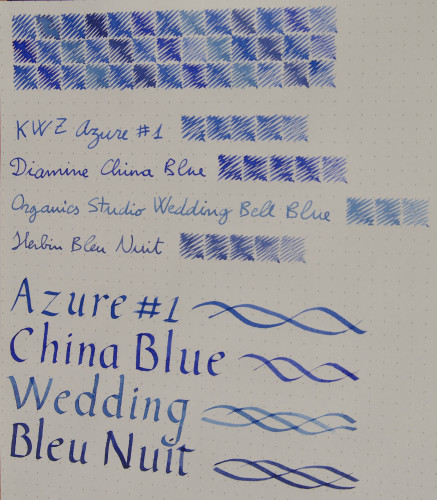 KWZ Azure #1
Diamine China Blue
Organics Studio Wedding Bell Blue
Herbin Bleu Nuit
Azure #1
China Blue
Wedding
Bleu Nuit